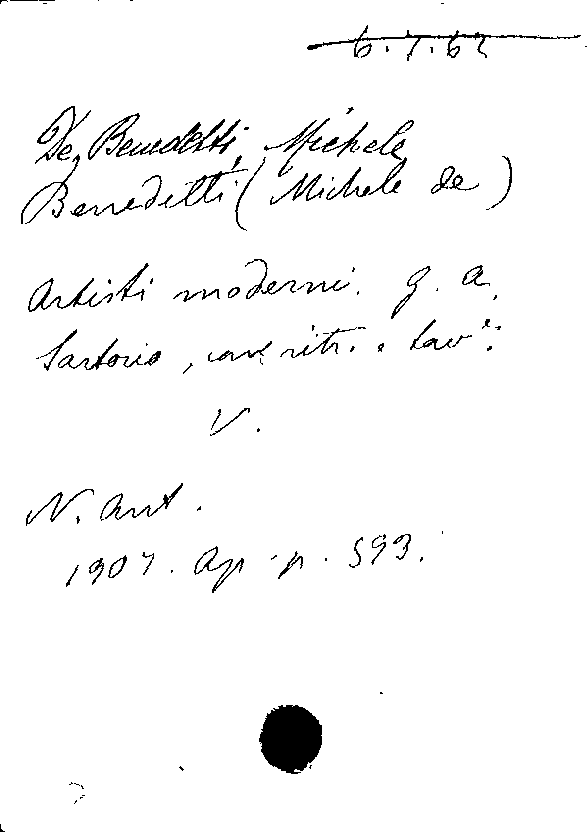 6.7.62
De Benedetti, Michele
Benedetti (Michele de)
Artisti moderni. G. A.
Sartorio, con ritr. e tav.e:
V.
N. Ant.
1907. Ap. p. 593.